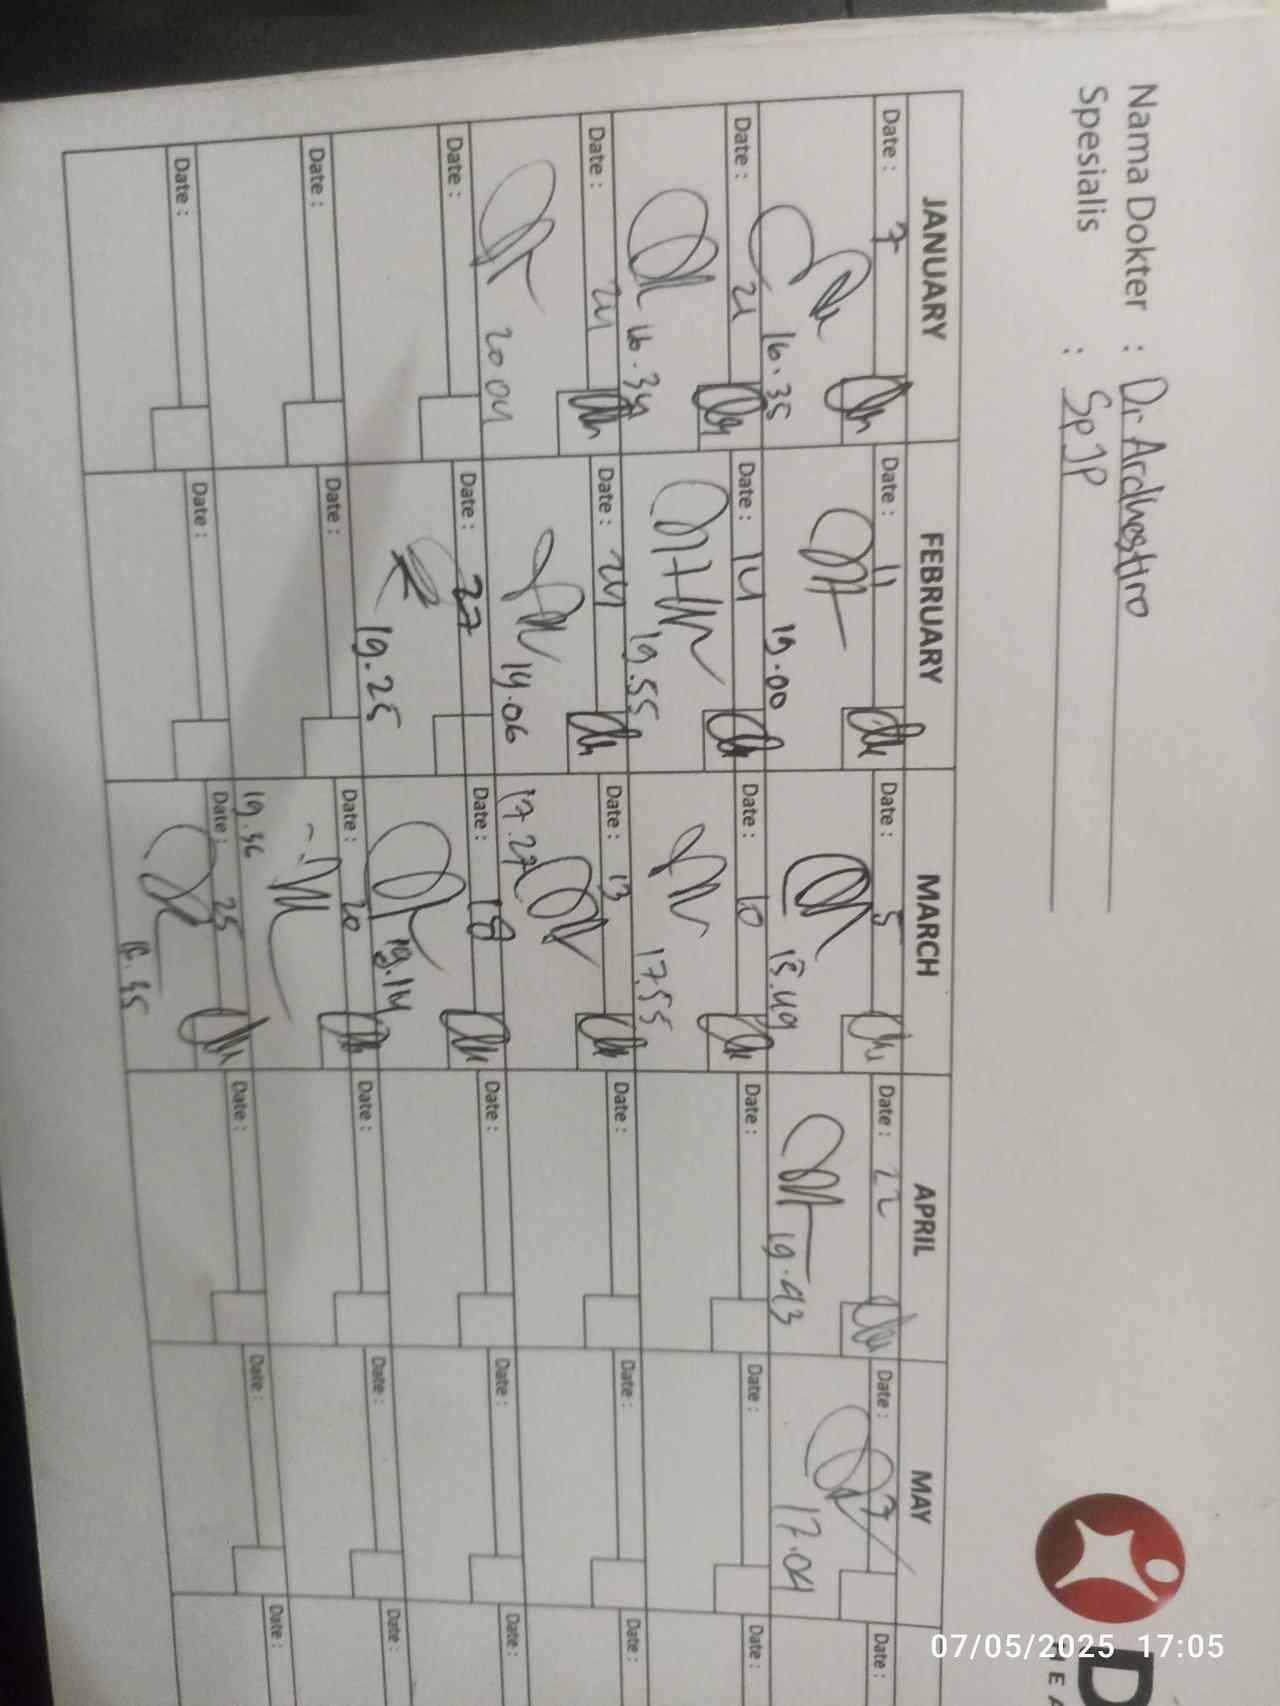 Nama Dokter : Dr Ardhestiro
Spesialis : Sp JP
JANUARY FEBRUARY MARCH APRIL MAY
Date : 7 Date : 11 Date : 5 Date : 22 Date : 7 Date :
16.35 19.00 15.49 19.43 17.04
Date : 21 Date : 14 Date : 10 Date : Date : Date :
16.34 19.55 17.55
Date : 24 Date : 24 Date : 13 Date : Date : Date :
20 04 19.06 17.27
Date : Date : 27 Date : 18 Date : Date : Date :
19.25 19.14
Date : Date : Date : 20 Date : Date : Date :
19.36
Date : Date : Date : 25 Date : Date : Date :
D
07/05/2025 17:05